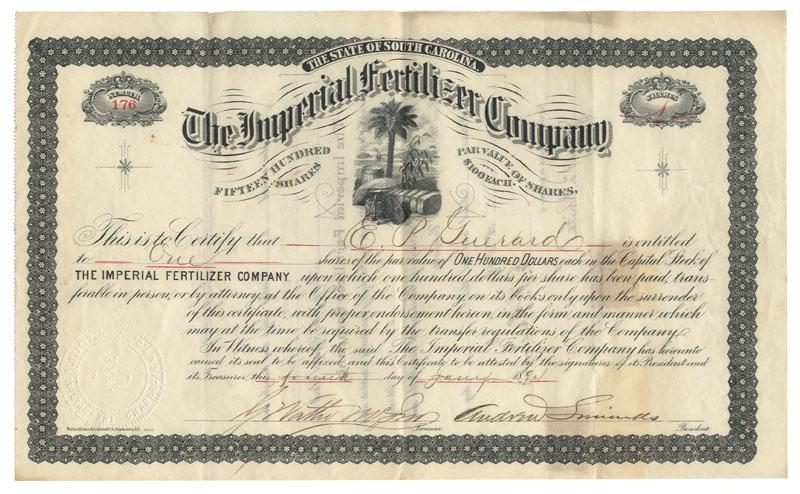 THE STATE OF SOUTH CAROLINA
NUMBER
176
SHARES
1
The Imperial Fertilizer Company
FIFTEEN HUNDRED
SHARES
PAR VALUE OF SHARES,
$100 EACH.
This is to Certify that E. P. Guerard is entitled
to One shares of the par value of ONE HUNDRED DOLLARS each in the Capital Stock of
THE IMPERIAL FERTILIZER COMPANY upon which one hundred dollars per share has been paid, trans-
ferable in person, or by attorney, at the Office of the Company on its books only upon the surrender
of this certificate, with proper endorsement hereon, in the form and manner which
may at the time be required by the transfer regulations of the Company.
In Witness whereof, the said The Imperial Fertilizer Company has hereunto
caused its seal to be affixed, and this Certificate to be attested by the signatures of its President and
its Treasurer this fourth day of Jany 189
Andrew Simonds
Treasurer
President